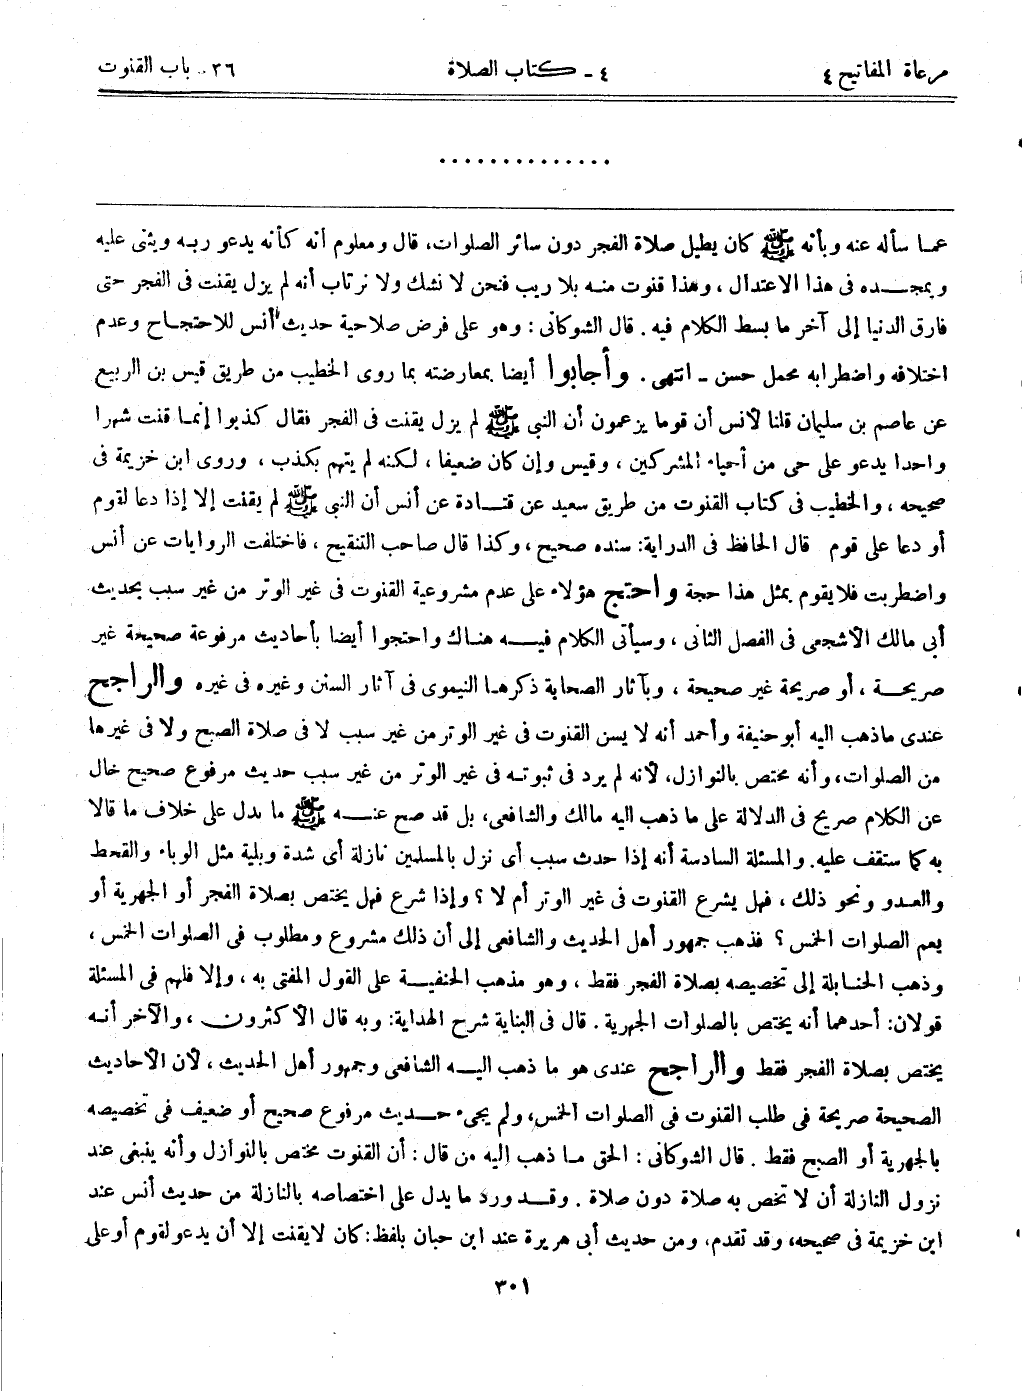 مرعاة المفاتيح ٤
٤ - كتاب الصلاة
٣٦ - باب القنوت
. . . . . . . . . . . . . .
عما سأله عنه وبأنه ﷺ كان يطيل صلاة الفجر دون سائر الصلوات، قال ومعلوم أنه كأنه يدعو ربه ويثنى عليه
ويمجده فى هذا الاعتدال، وهذا قنوت منه بلا ريب فنحن لا نشك ولا نرتاب أنه لم يزل يقنت فى الفجر حتى
فارق الدنيا إلى آخر ما بسط الكلام فيه. قال الشوكانى: وهو على فرض صلاحية حديث أنس للاحتجاج وعدم
اختلافه واضطرابه محمل حسن - انتهى. وأجابوا أيضا بمعارضته بما روى الخطيب من طريق قيس بن الربيع
عن عاصم بن سليمان قلنا لأنس أن قوما يزعمون أن النبى ﷺ لم يزل يقنت فى الفجر فقال كذبوا إنما قنت شهرا
واحدا يدعو على حى من أحياء المشركين، وقيس وإن كان ضعيفا، لكنه لم يتهم بكذب، وروى ابن خزيمة فى
صحيحه، والخطيب فى كتاب القنوت من طريق سعيد عن قتادة عن أنس أن النبى ﷺ لم يقنت إلا إذا دعا لقوم
أو دعا على قوم قال الحافظ فى الدراية: سنده صحيح، وكذا قال صاحب التنقيح، فاختلفت الروايات عن أنس
واضطربت فلا يقوم بمثل هذا حجة واحتج هؤلاء على عدم مشروعية القنوت فى غير الوتر من غير سبب بحديث
أبى مالك الأشجعى فى الفصل الثانى، وسيأتى الكلام فيه هناك واحتجوا أيضا بأحاديث مرفوعة صحيحة غير
صريحة، أو صريحة غير صحيحة، وبآثار الصحابة ذكرها النيموى فى آثار السنن وغيره فى غيره والراجح
عندى ماذهب اليه أبو حنيفة وأحمد أنه لا يسن القنوت فى غير الوتر من غير سبب لا فى صلاة الصبح ولا فى غيرها
من الصلوات، وأنه مختص بالنوازل، لأنه لم يرد فى ثبوته فى غير الوتر من غير سبب حديث مرفوع صحيح خال
عن الكلام صريح فى الدلالة على ما ذهب اليه مالك والشافعى، بل قد صح عنه ﷺ ما يدل على خلاف ما قالا
به كما ستقف عليه. والمسئلة السادسة أنه إذا حدث سبب أى نزل بالمسلمين نازلة أى شدة وبلية مثل الوباء والقحط
والعدو ونحو ذلك، فهل يشرع القنوت فى غير الوتر أم لا؟ وإذا شرع فهل يختص بصلاة الفجر أو الجهرية أو
يعم الصلوات الخمس؟ فذهب جمهور أهل الحديث والشافعى إلى أن ذلك مشروع ومطلوب فى الصلوات الخمس،
وذهب الحنابلة إلى تخصيصه بصلاة الفجر فقط، وهو مذهب الحنفية على القول المفتى به، وإلا فلهم فى المسئلة
قولان: أحدهما أنه يختص بالصلوات الجهرية. قال فى البناية شرح الهداية: وبه قال الأكثرون، والآخر أنه
يختص بصلاة الفجر فقط والراجح عندى هو ما ذهب اليه الشافعى وجمهور أهل الحديث، لأن الأحاديث
الصحيحة صريحة فى طلب القنوت فى الصلوات الخمس، ولم يجىء حديث مرفوع صحيح أو ضعيف فى تخصيصه
بالجهرية أو الصبح فقط. قال الشوكانى: الحق ما ذهب اليه من قال: أن القنوت مختص بالنوازل وأنه ينبغى عند
نزول النازلة أن لا تخص به صلاة دون صلاة. وقد ورد ما يدل على اختصاصه بالنازلة من حديث أنس عند
ابن خزيمة فى صحيحه، وقد تقدم، ومن حديث أبى هريرة عند ابن حبان بلفظ: كان لا يقنت إلا أن يدعو لقوم أو على
٣٠١